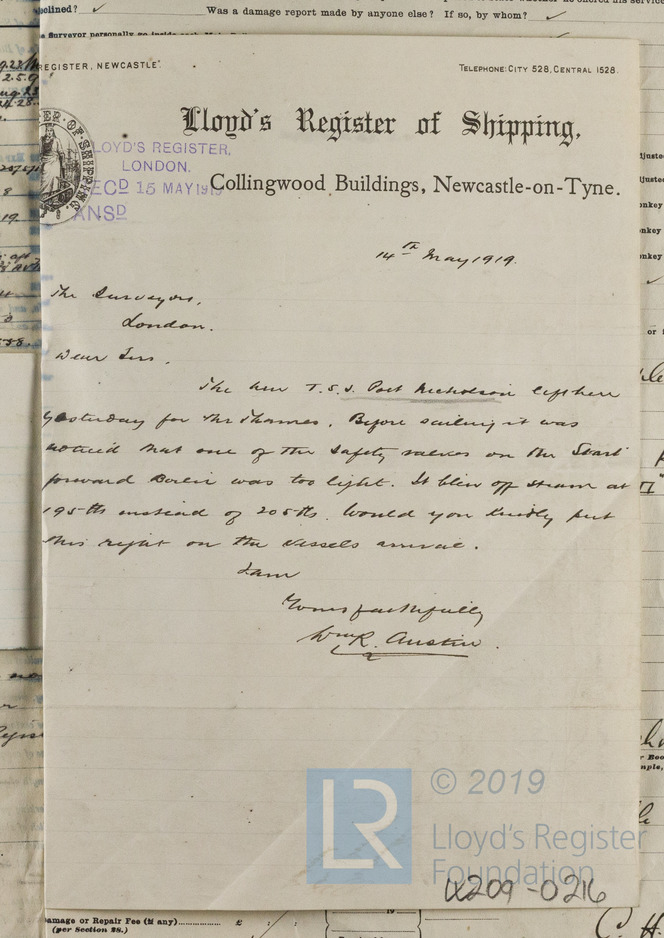 eclined? ✓ Was a damage report made by anyone else? If so, by whom? ✓
REGISTER, NEWCASTLE".
TELEPHONE: CITY 528, CENTRAL 1528.
Lloyd's Register of Shipping,
LOYD'S REGISTER,
LONDON.
ECD 15 MAY 191
ANSD
Collingwood Buildings, Newcastle-on-Tyne.
14th May 1919.
The Surveyors,
London.
Dear Sirs,
The new T.S.S. Port Nicholson left here
yesterday for the Thames. Before sailing it was
noticed that one of the safety valves on the Starb
forward Boiler was too light. It blew off steam at
195 lbs instead of 205 lbs. Would you kindly put
this right on the vessels arrival.
I am
Yours faithfully
Wm R. Austin.
LR
© 2019
Lloyd's Register
Foundation
W209-0216
amage or Repair Fee (if any) £ : :
(per Section 28.)